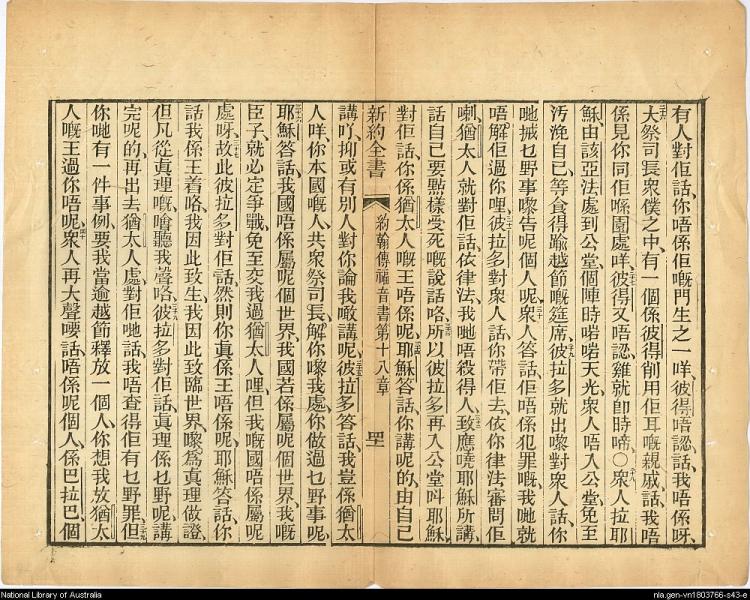 有人對佢話、你唔係佢嘅門生之一咩、彼得唔認、話、我唔係呀、
大祭司長衆僕之中、有一個係彼得削用佢耳嘅親戚、話、我唔
係見你同佢喺園處咩、彼得又唔認、雞就卽時啼、〇衆人拉耶
穌、由該亞法處到公堂、個陣時啱啱天光、衆人唔入公堂、免至
污浼自己、等食得踰越節嘅筵席、彼拉多就出嚟對衆人話、你
哋搣乜野事嚟告呢個人呢、衆人答話、佢唔係犯罪嘅、我哋就
唔解佢過你哩、彼拉多對衆人話、你帶佢去、依你律法審問佢
喇、猶太人就對佢話、依律法、我哋唔殺得人、致應嘵耶穌所講
話自己要點樣受死嘅說話咯、所以彼拉多再入公堂呌耶穌
對佢話、你係猶太人嘅王唔係呢、耶穌答話、你講呢的、由自己
新約全書 約翰傳福音書第十八章 四十
講吖、抑或有別人對你論我噉講呢、彼拉多答話、我豈係猶太
人咩、你本國嘅人、共衆祭司長、解你嚟我處、你做過乜野事呢、
耶穌答話、我國唔係屬呢個世界、我國若係屬呢個世界、我嘅
臣子、就必定爭戰、免至交我過猶太人哩、但我嘅國唔係屬呢
處呀、故此彼拉多對佢話、然則你眞係王唔係呢、耶穌答話、你
話我係王着咯、我因此致生、我因此致臨世界、嚟爲眞理做證、
但凡從眞理嘅、噲聽我聲咯、彼拉多對佢話、眞理係乜野呢、講
完呢的、再出去猶太人處、對佢哋話、我唔查得佢有乜野罪、但
你哋有一件事例、要我當逾越節釋放一個人、你想我放猶太
人嘅王過你唔呢、衆人再大聲嘜話、唔係呢個人、係巴拉巴、個
National Library of Australia
nla.gen-vn1803766-s43-e